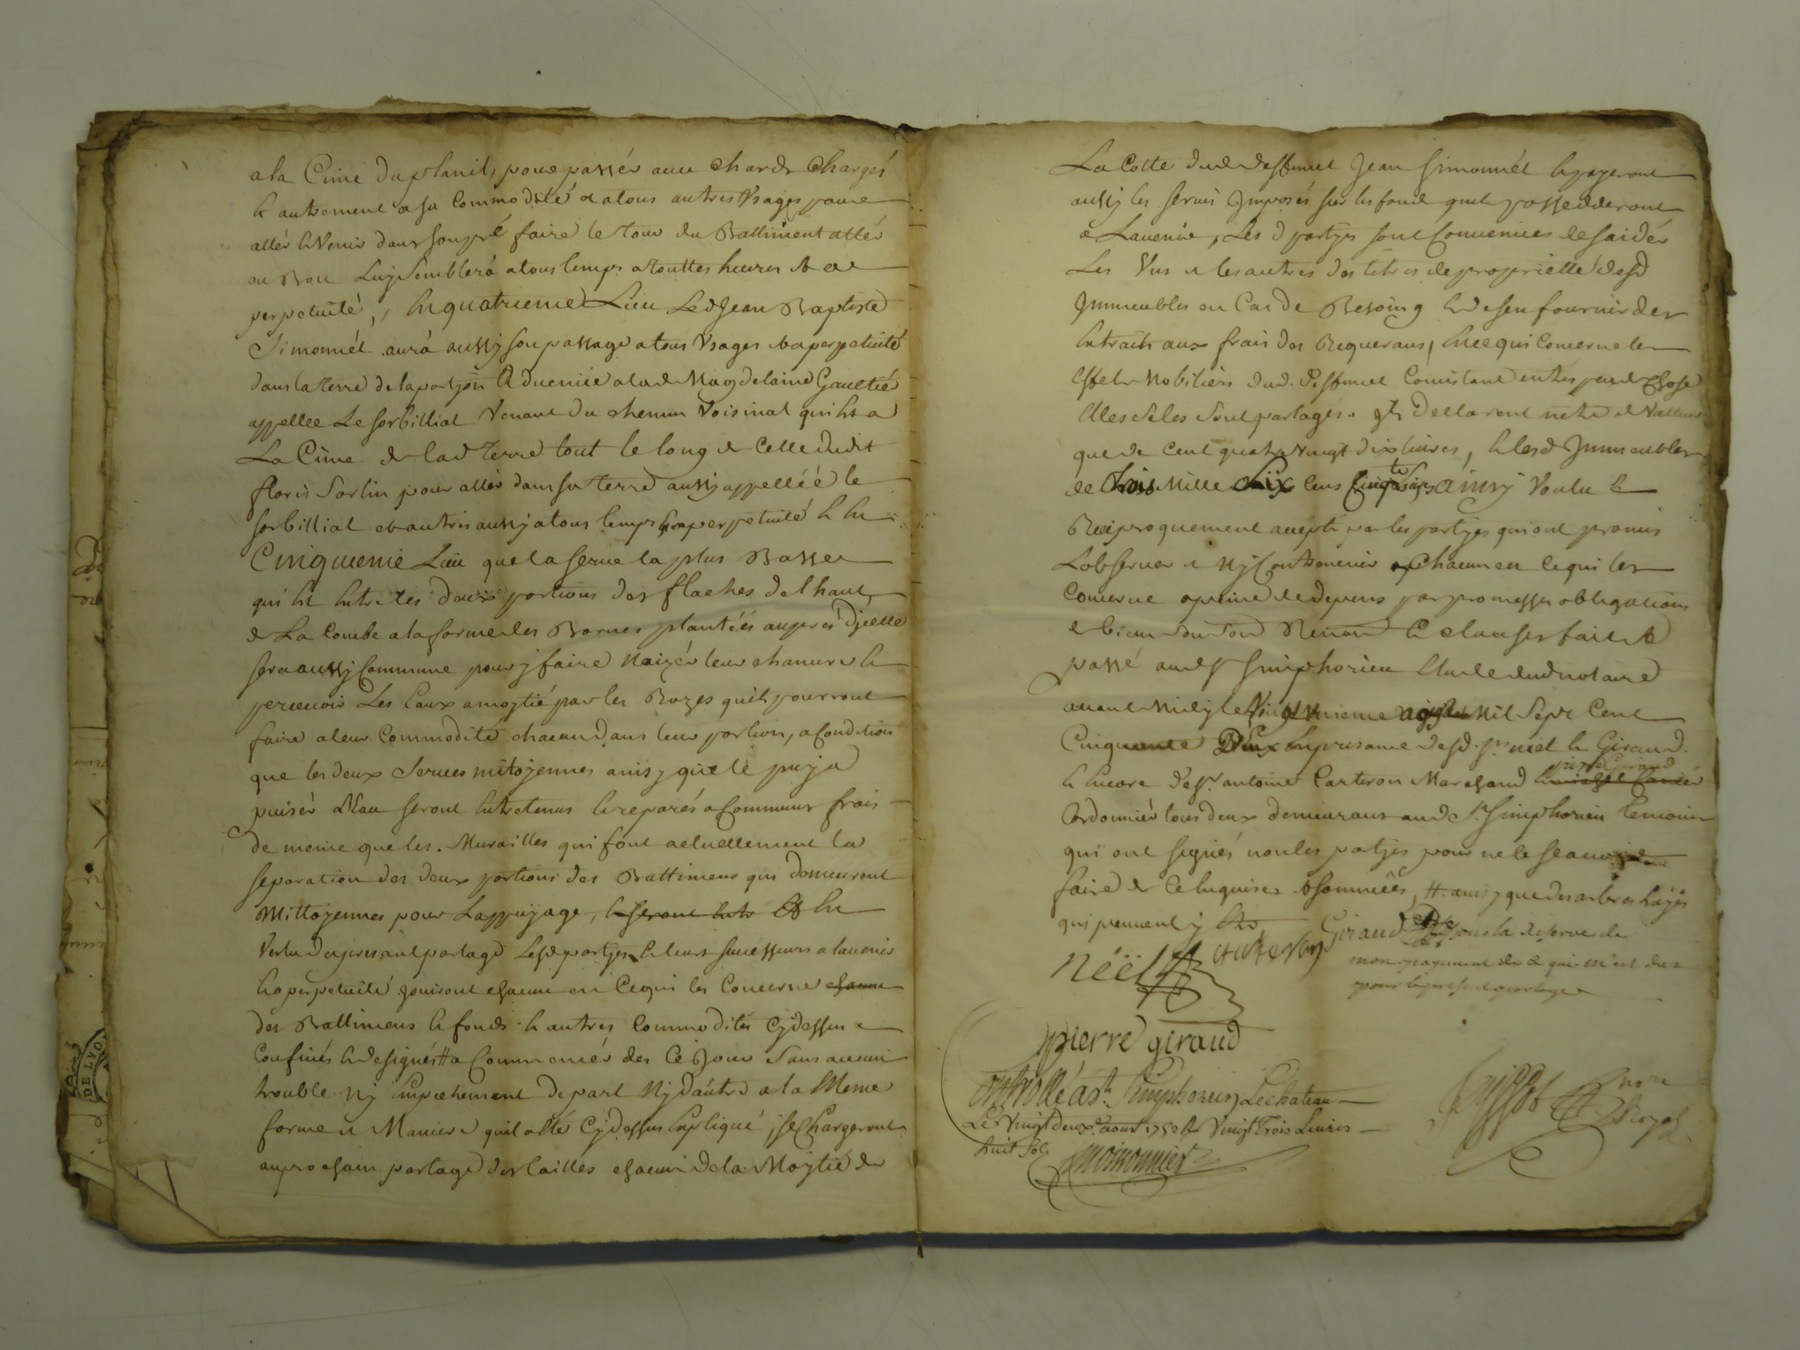 a la Cime du planil, pour passér avec chards Chargés
& autrement a sa Commodité et a tous autres Usages pour
allér & Venir dans son pré faire le tour du Battiment allér
ou Bon Luy Semblera a tous temps a touttes heures & a
perpetuité, En quatrieme Lieu Led Jean Baptiste
Simonnét aura aussy son passage a tous Usages & a perpetuité
dans la terre de la portion advenüe a lad Magdelaine Gaultié
appellée Le sorbilliat Venant du chemin Voisinal qui est a
La Cime de lad terre tout le long de Celle dudit
floris Sorlin pour aller dans sa terre aussy appelléé le
sorbilliat et autres aussy a tous temps & a perpetuité & En
Cinquieme Lieu que la serve la plus Basse
qui est Entre les deux portions des flaches de Lhaut
& La Combe a la forme des Bornes plantéés auprés Dycelle
sera aussy Commune pour y faire Naizér leur chanvre &
percevoir Les Eaux a moytié par les Razes quils pourront
faire a leur Commodité chacun dans leur portion, a Condition
que les deux Serves mitoyennes ainsy que le puy a
puisér d'Eau seront Entretenus & reparés a Communs frais
de meme que les Murailles qui font actuellement la
separation des deux portions des Battimens qui demeuront
Mittoyennes pour Lappuyage, & seront Entr & En
Vertu du present partage Lesd partyes & leurs successeurs a lavenir
& a perpetuité jouiront chacun en Ce qui les Concerne chacun
des Battimens & fonds & autres Commodités Cydessus
Confinés & designés # a Commencér des Ce Jour Sans aucun
trouble Ny Empechement de part Ny d'autre a la Meme
forme & Maniere quil a été Cydessus Expliqué, se Chargeront
au prochain partage des tailles chacun de la Moytié de
La Cotte dud deffunct Jean Simonnét & payeront
aussy les servis Imposés sur les fonds quils possedderont
a Lavenir, Les d partyes sont Convenües de saidér
Les Uns & les autres des titres de proprietté desd
Immeubles en Cas de Besoing & de sen fournir des
Extraits aux frais des Requerans, En ce qui Concerne les
Effets Mobiliers dud. deffunct Consistant en tres peu de Chose
Elles Se les sont partagés. Ils Declarent netre de Valleur
que de Cent quatre Vingt dix livres, & lesd Immeubles
de trois Mille Six Cens ainsy Voulu &
Reciproquement accepté par les partyes qui ont promis
Lobserver & Ny Contrevenir chacun en Ce qui les
Concerne a peine de depens par promesses obligations
& biens Renon & clauses fait &
passé aud St Simphorien Etude dud notaire
avant Midy le Vingt unieme aoust Mil Sept Cent
Cinquante Deux En presence desd. Srs niel & Giraud.
& Encore de Sr antoine Carteron Marchand & pierre Giraud
Cordonniér tous deux demeurans aud St Simphorien temoins
qui ont signés non les partyes pour ne le scavoir
faire de Ce Enquises & sommées, #. ainsy que des arbres & hayes
qui prennent y
Giraud sous la reserve de
mon payement de Ce qui m'est dus
pour le present partage
nëël
pierre giraud
Controllé a St Simphorien Le chateau
Le Vingt deux aoust 1752 Vingt Trois Livres
huit Sols
noire
Royal
DE LYON